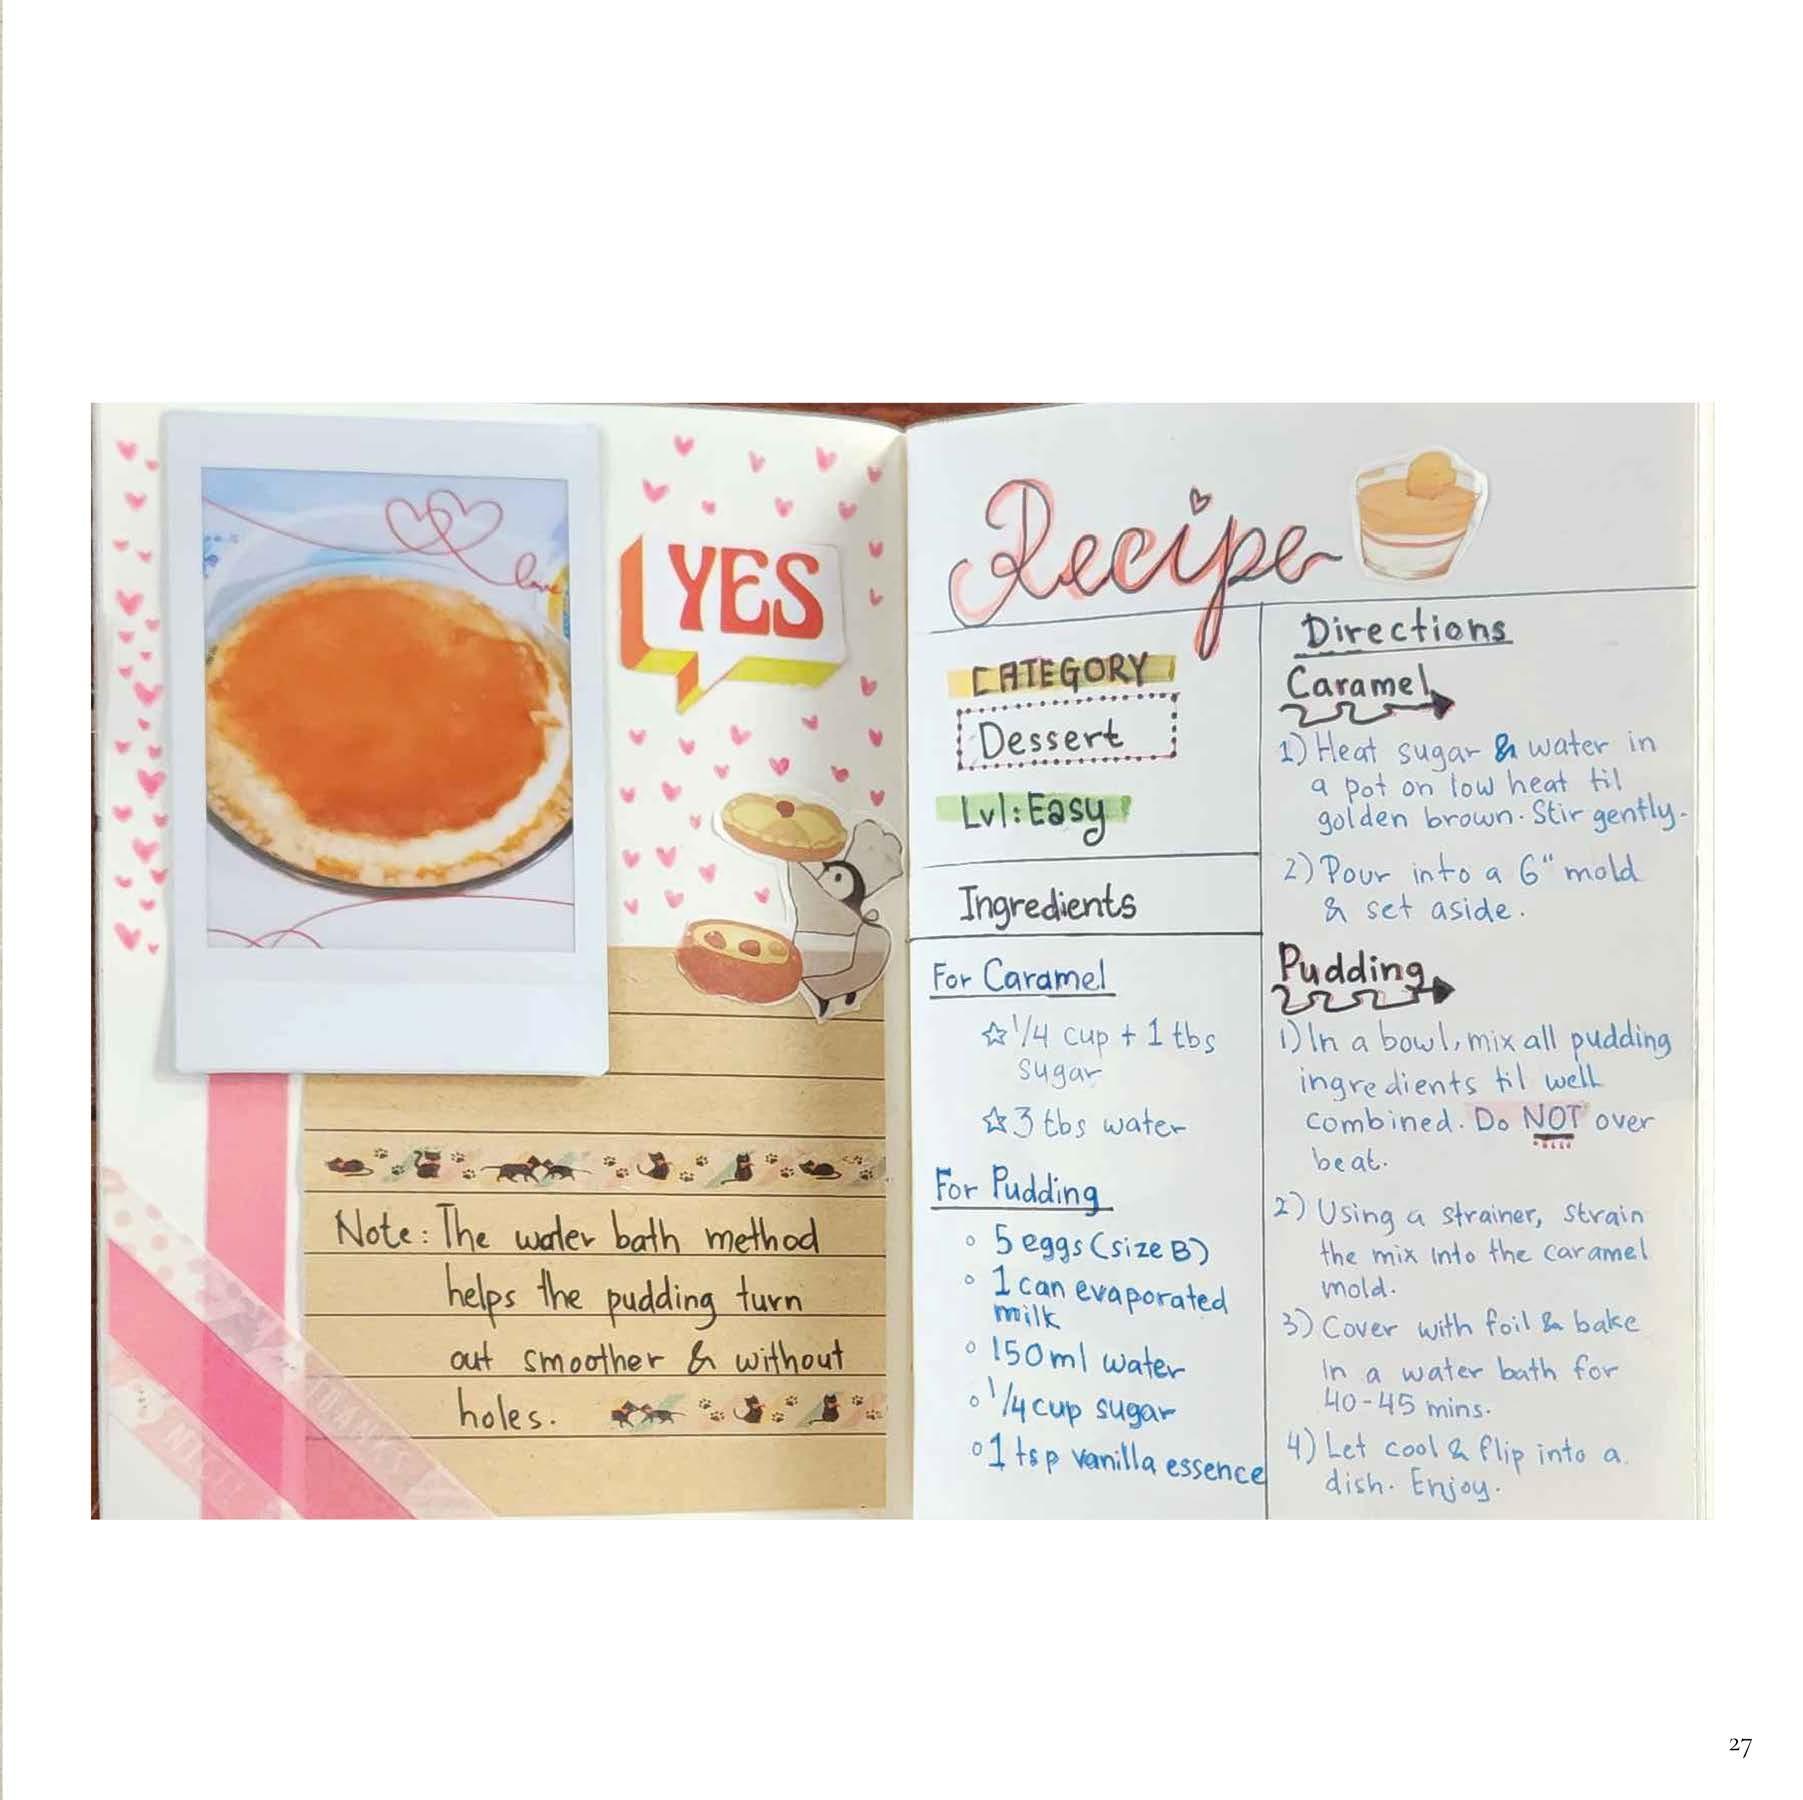 love
YES
Note: The water bath method
helps the pudding turn
out smoother & without
holes.
THANKS
NICE
Recipe
CATEGORY
Dessert
Lvl: Easy
Ingredients
For Caramel
☆ 1/4 cup + 1 tbs
sugar
☆ 3 tbs water
For Pudding
° 5 eggs (size B)
° 1 can evaporated
milk
° 150ml water
° 1/4 cup sugar
° 1 tsp vanilla essence
Directions
Caramel
1) Heat sugar & water in
a pot on low heat til
golden brown. Stir gently.
2) Pour into a 6" mold
& set aside.
Pudding
1) In a bowl, mix all pudding
ingredients til well
combined. Do NOT over
beat.
2) Using a strainer, strain
the mix into the caramel
mold.
3) Cover with foil & bake
in a water bath for
40-45 mins.
4) Let cool & flip into a
dish. Enjoy.
27